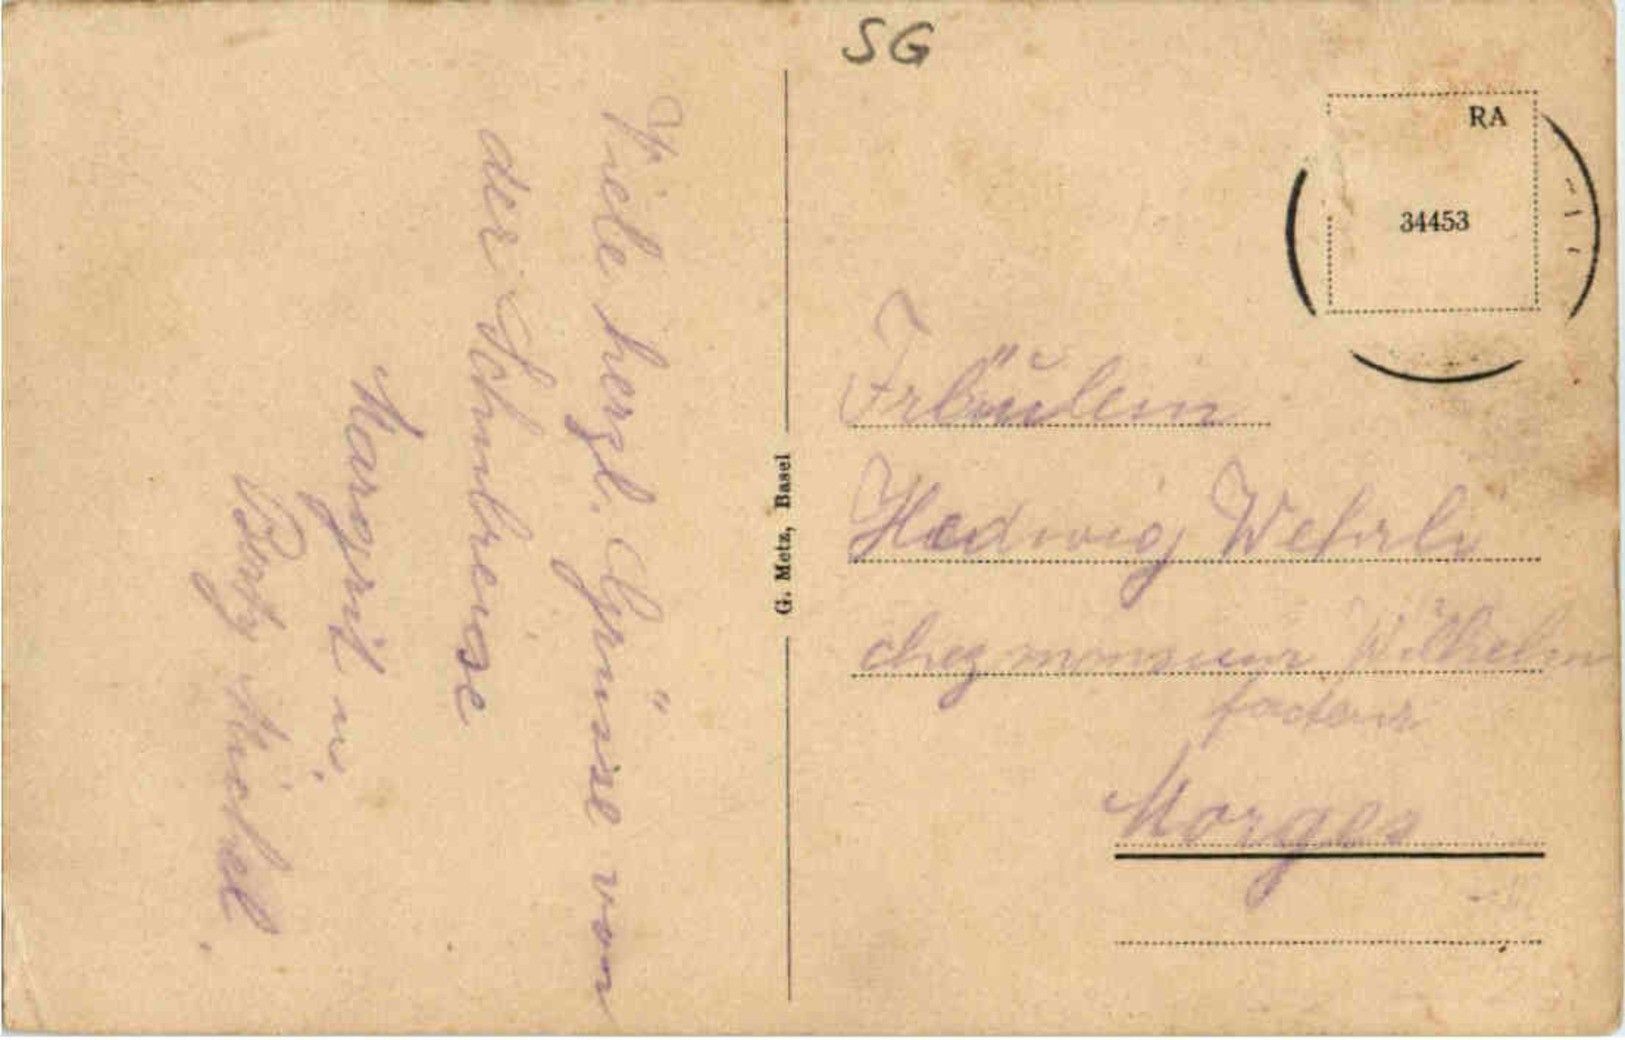 SG
RA
34453
Viele herzl. Grüsse von
der Schulreise
Margrit u.
Michel.
G. Metz, Basel
Fräulein
Hedwig Wehrli
chez monsieur Wilhelm
facteur
Morges